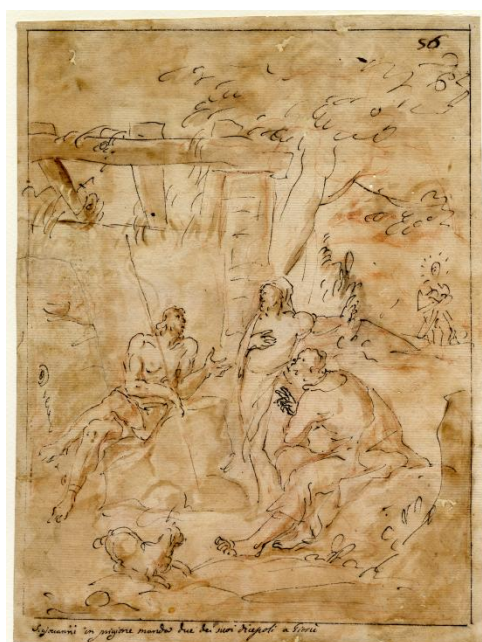 56
S. Giovanni in prigione manda due dei suoi discepoli a Giesù